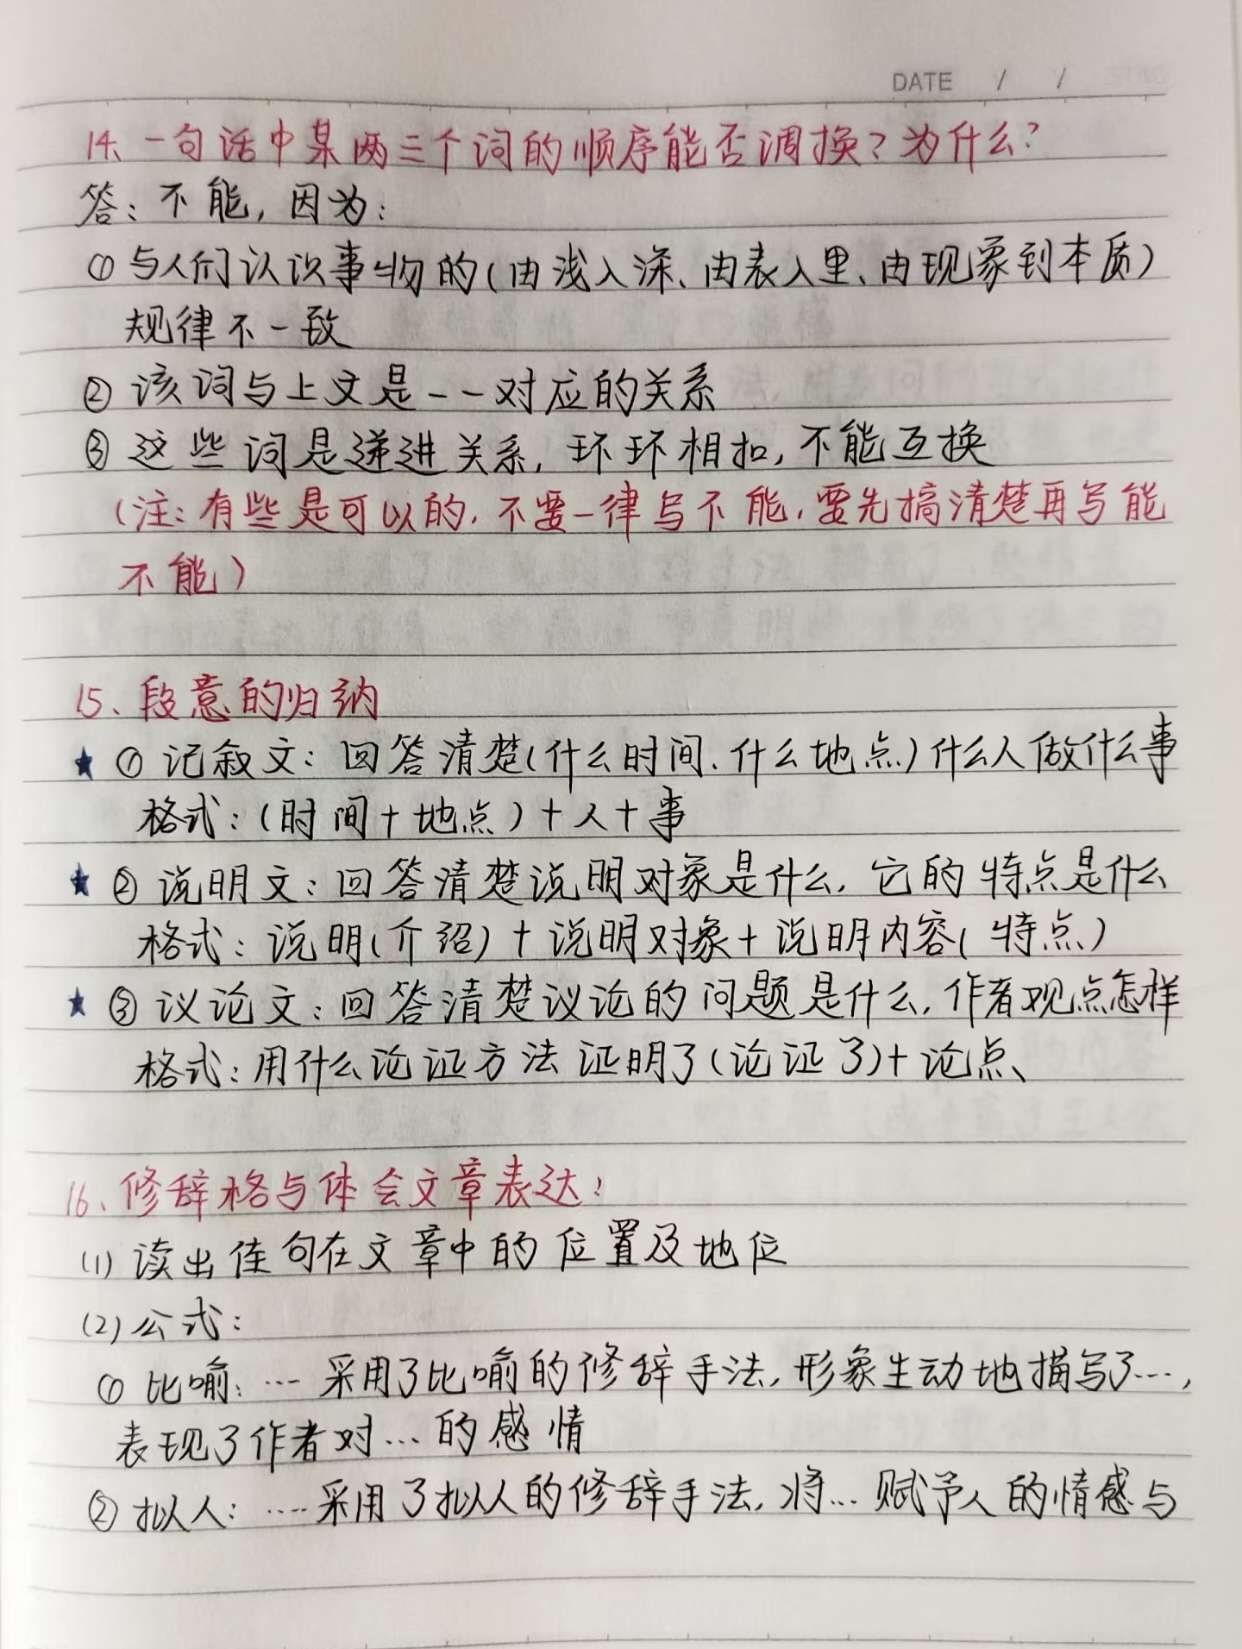 DATE / /
14、一句话中某两三个词的顺序能否调换？为什么？
答：不能，因为：
①与人们认识事物的（由浅入深、由表入里、由现象到本质）
规律不一致
②该词与上文是一一对应的关系
③这些词是递进关系，环环相扣，不能互换
（注：有些是可以的，不要一律写不能，要先搞清楚再写能
不能）
15、段意的归纳
★①记叙文：回答清楚（什么时间、什么地点）什么人做什么事
格式：（时间+地点）+人+事
★②说明文：回答清楚说明对象是什么，它的特点是什么
格式：说明（介绍）+说明对象+说明内容（特点）
★③议论文：回答清楚议论的问题是什么，作者观点怎样
格式：用什么论证方法证明了（论证了）+论点、
16、修辞格与体会文章表达：
(1)读出佳句在文章中的位置及地位
(2)公式：
①比喻：…采用了比喻的修辞手法，形象生动地描写了…，
表现了作者对…的感情
②拟人：……采用了拟人的修辞手法，将…赋予人的情感与